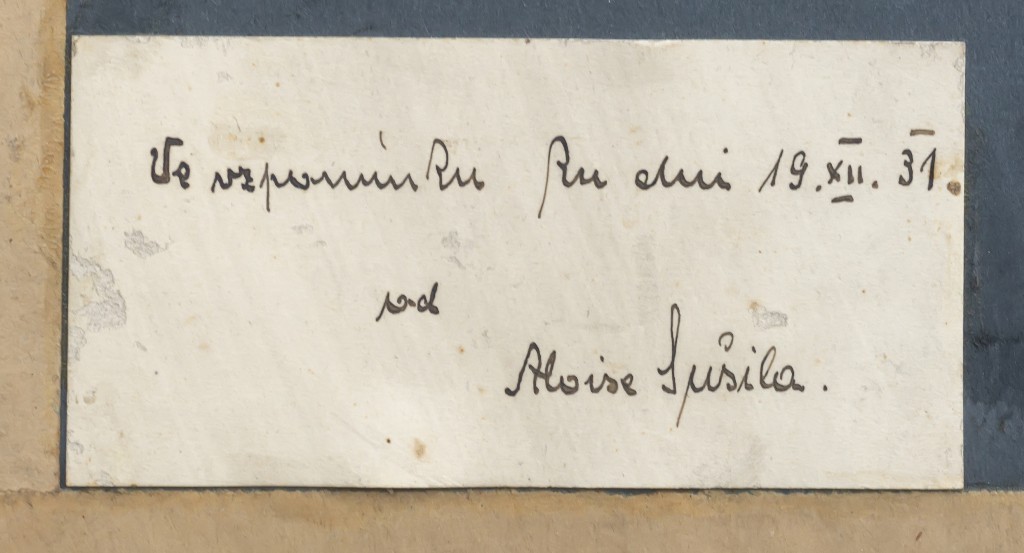 Ve vzpomínku ku dni 19.XII.31.
od
Aloise Sušila.